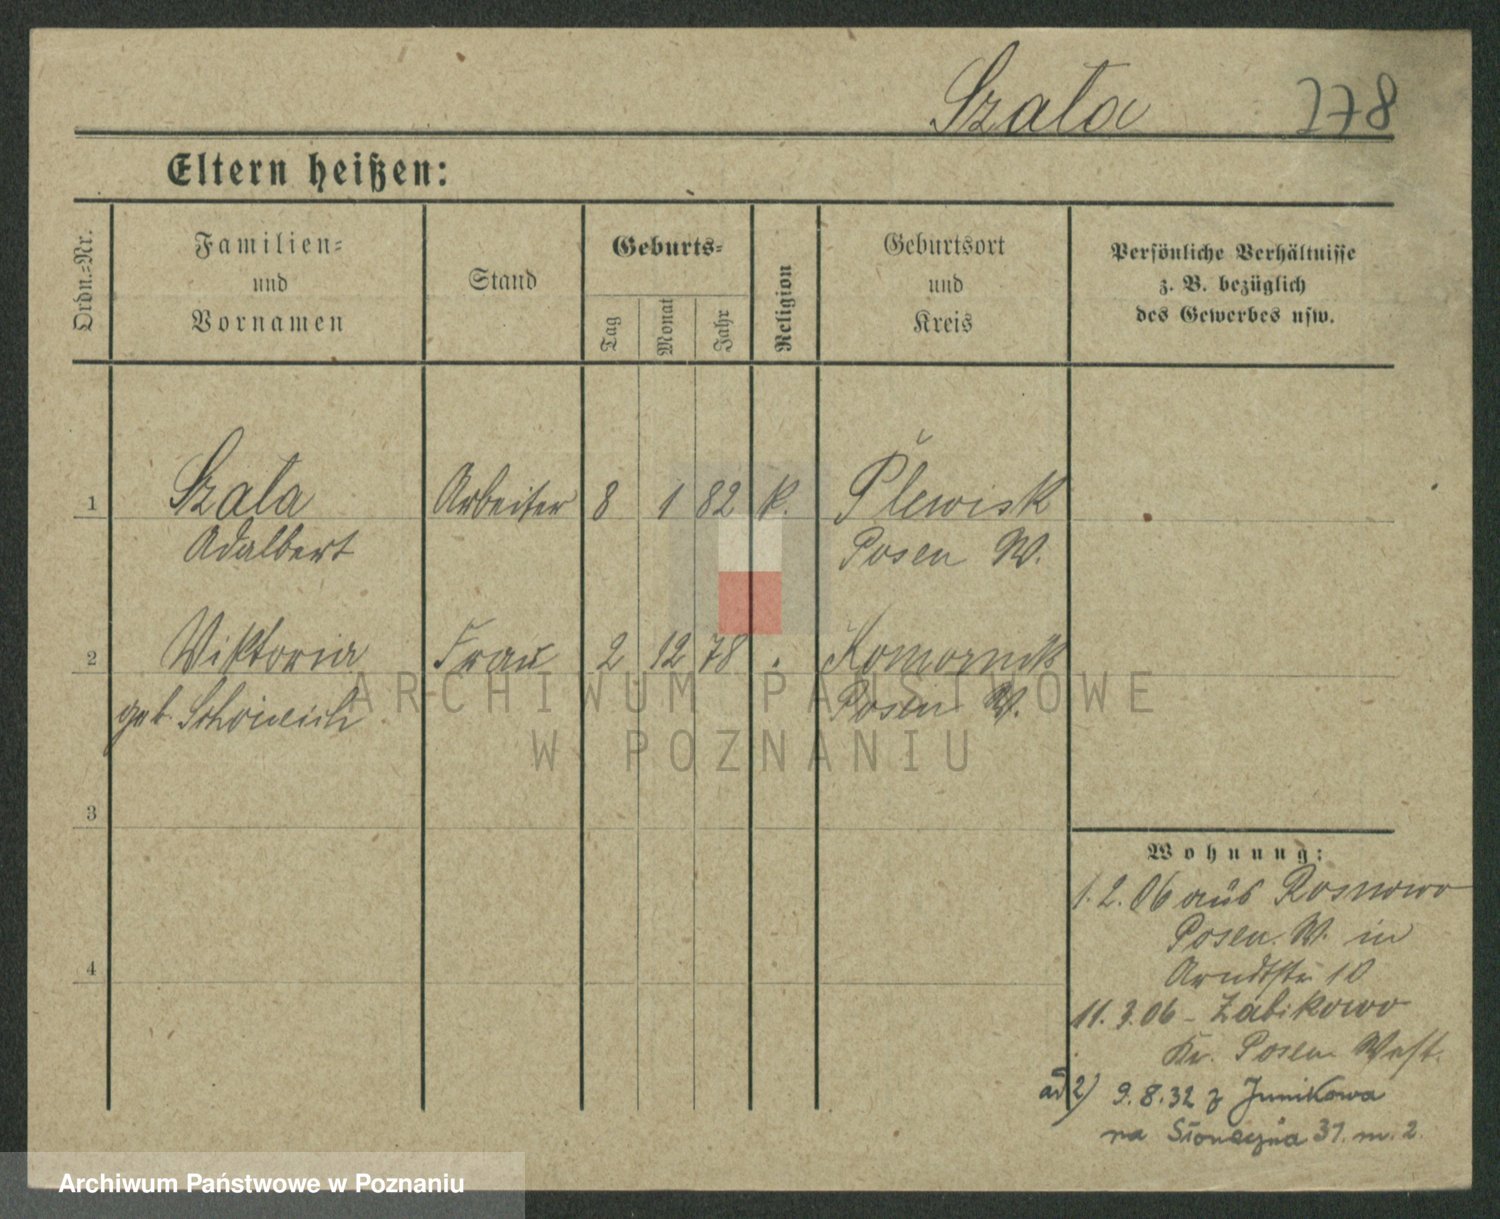 Szała 278
Eltern heißen:
Ordn.-Nr.
Familien-
und
Vornamen
Stand
Geburts-
Tag
Monat
Jahr
Religion
Geburtsort
und
Kreis
Persönliche Verhältnisse
z. B. bezüglich
des Gewerbes usw.
1 Szała Arbeiter 8 1 82 k. Plewisk
Adalbert Posen W.
2 Viktoria Frau 2 12 78 Komornik
geb. Posen W.
3
4
Wohnung:
1. 2. 06 aus Rosnowo
Posen W. in
Arndtstr 10
11. 3. 06 - Zabikowo
Kr. Posen West.
ad 2) 9. 8. 32 z Junikowa
na Słoneczna 31. m. 2
ARCHIWUM PAŃSTWOWE
W POZNANIU
Archiwum Państwowe w Poznaniu